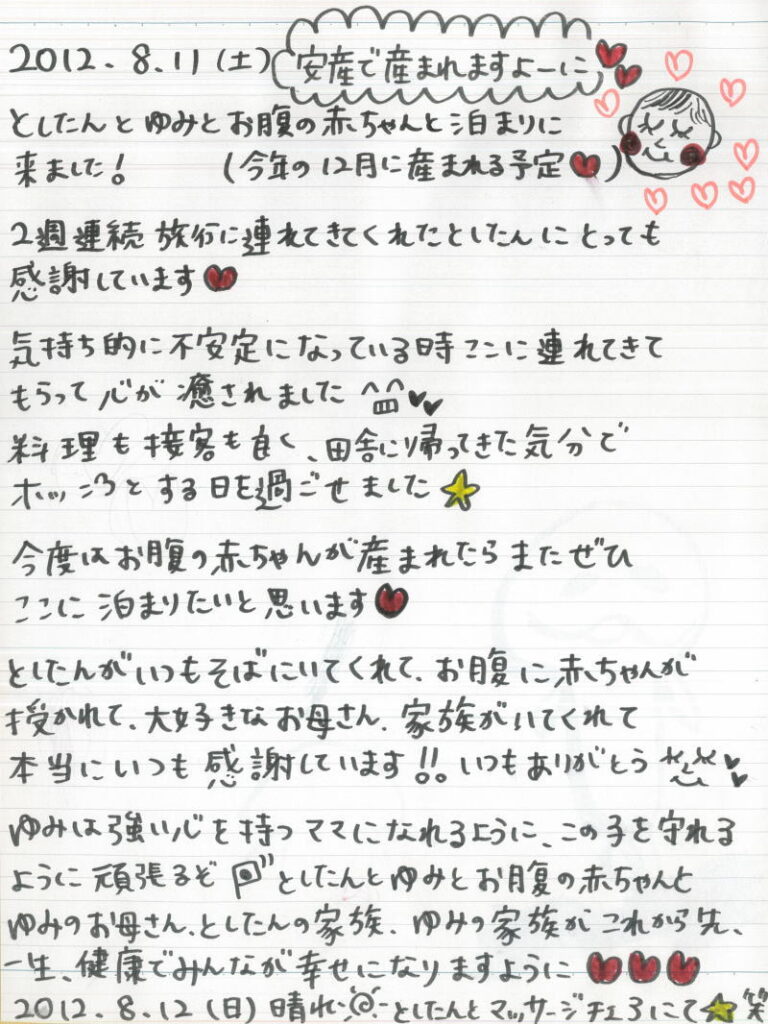 2012.8.11(土) 安産で産まれますよーに
としたんとゆみとお腹の赤ちゃんと泊まりに
来ました! (今年の12月に産まれる予定)
2週連続旅行に連れてきてくれたとしたんにとっても
感謝しています
気持ち的に不安定になっている時ここに連れてきて
もらって心が癒されました
料理も接客も良く、田舎に帰ってきた気分で
ホッころとする日を過ごせました
今度はお腹の赤ちゃんが産まれたらまたぜひ
ここに泊まりたいと思います
としたんがいつもそばにいてくれて、お腹に赤ちゃんが
授かれて、大好きなお母さん、家族がいてくれて
本当にいつも感謝しています!!いつもありがとう
ゆみは強い心を持つママになれるように、この子を守れる
ように頑張るぞ としたんとゆみとお腹の赤ちゃんと
ゆみのお母さん、としたんの家族、ゆみの家族がこれから先、
一生、健康でみんなが幸せになりますように
2012.8.12(日)晴れ としたんとマッサージチェアにて 笑